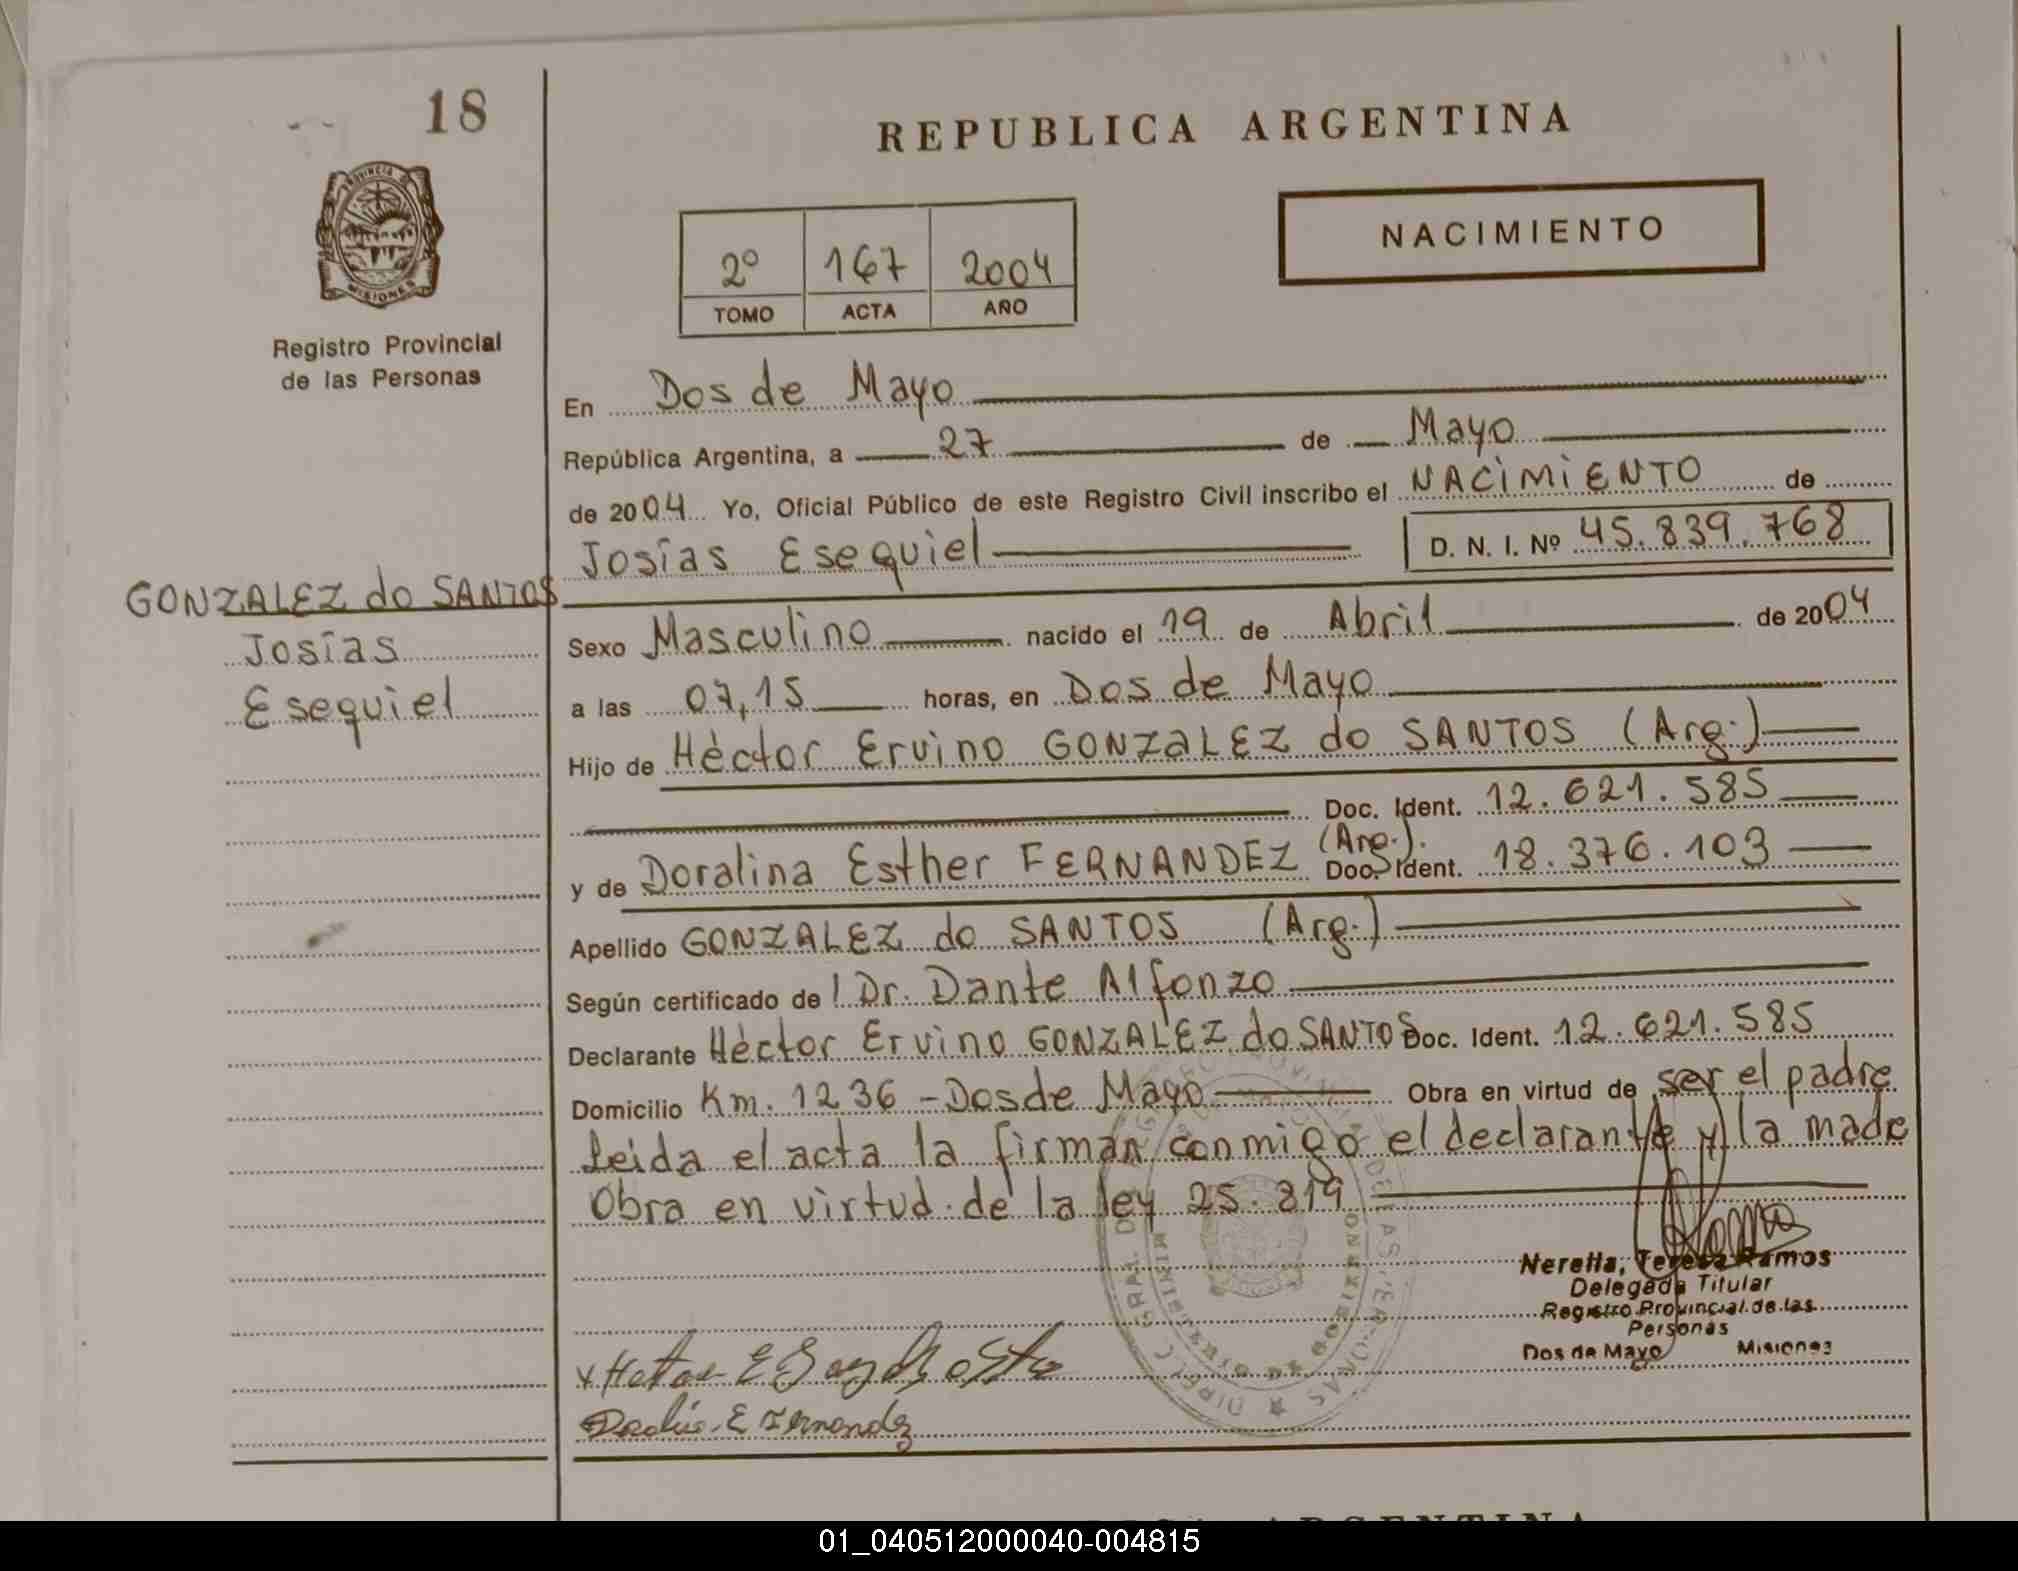 18
REPUBLICA ARGENTINA
NACIMIENTO
2º 167 2004
TOMO ACTA AÑO
PROVINCIA DE
MISIONES
Registro Provincial
de las Personas
En Dos de Mayo
República Argentina, a 27 de Mayo
de 2004 Yo, Oficial Público de este Registro Civil inscribo el NACIMIENTO de
Josías Esequiel D. N. I. Nº 45.839.768
GONZALEZ do SANTOS
Josías
Esequiel
Sexo Masculino nacido el 19 de Abril de 2004
a las 07,15 horas, en Dos de Mayo
Hijo de Héctor Ervino GONZALEZ do SANTOS (Arg.)
Doc. Ident. 12.621.585
y de Doralina Esther FERNANDEZ (Arg.) Doc. Ident. 18.376.103
Apellido GONZALEZ do SANTOS (Arg.)
Según certificado de l Dr. Dante Alfonzo
Declarante Héctor Ervino GONZALEZ do SANTOS Doc. Ident. 12.621.585
Domicilio Km. 1236 - Dos de Mayo Obra en virtud de ser el padre
Leida el acta la firman conmigo el declarante y la made
Obra en virtud de la ley 25.819
Nerella, Teresa Ramos
Delegada Titular
Registro Provincial de las
Personas
Dos de Mayo Misiones
E Fernandez
ARGENTINA
01_040512000040-004815